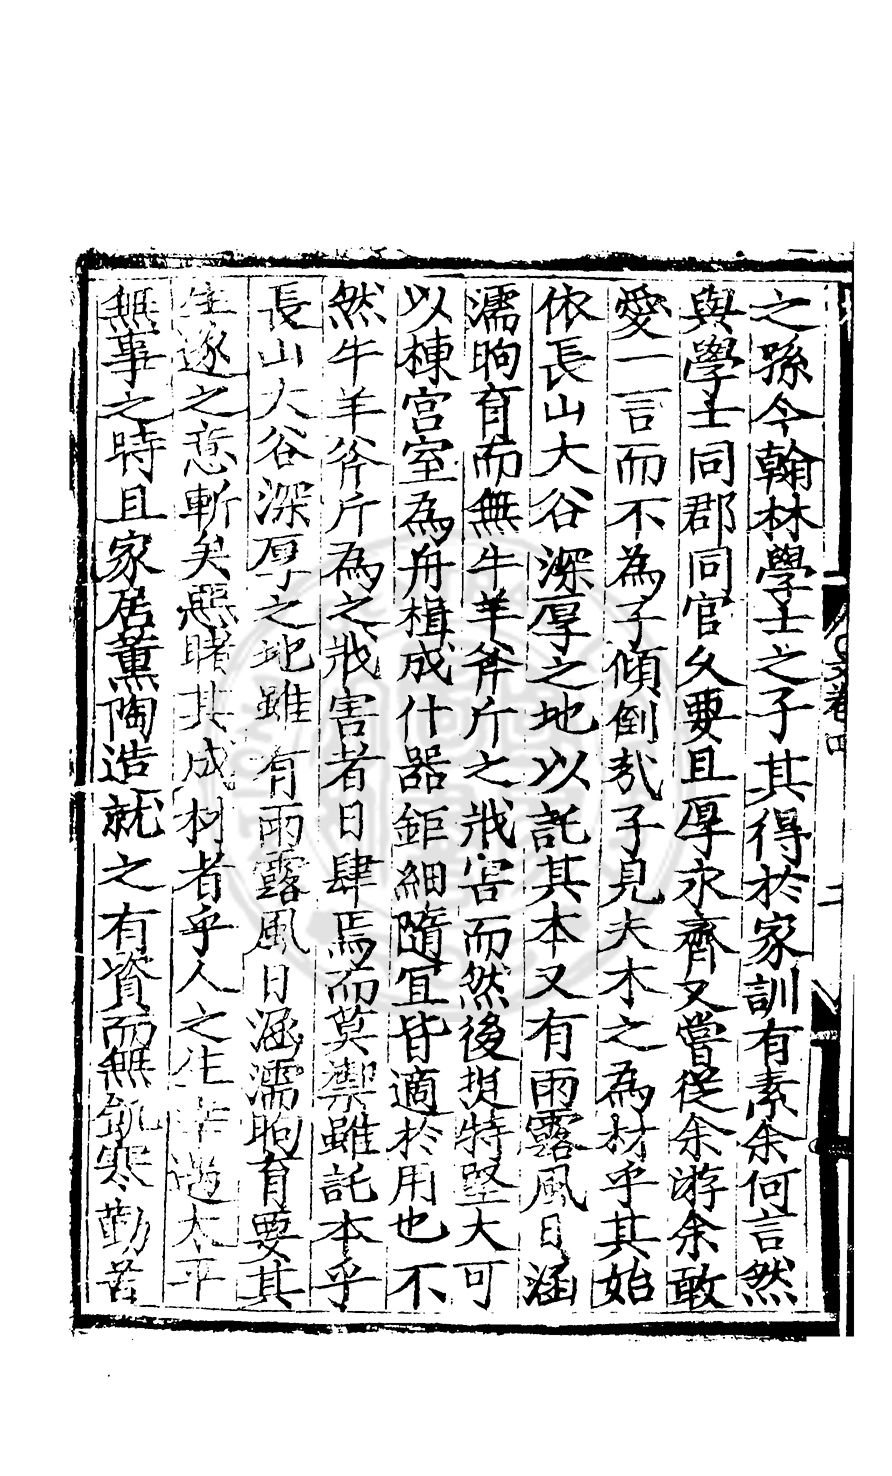 之孫今翰林學士之子其得於家訓有素余何言然
與學士同郡同官久要且厚永齊又嘗從余游余敢
愛一言而不為子傾倒㢤子見夫木之為材乎其始
依長山大谷深厚之地以託其本又有雨露風日涵
濡昫育而無牛羊斧斤之戕害而然後挺特堅大可
以棟宫室為舟楫成什器鉅細隨宜皆適於用也不
然牛羊斧斤為之戕害者日肆焉而莫禦雖託本乎
長山大谷深厚之地雖有雨露風日涵濡昫育要其
生遂之意斬矣惡睹其成材者乎人之生幸遇太平
無事之時且家居薰陶造就之有資而無飢寒勤苦
文卷四
二